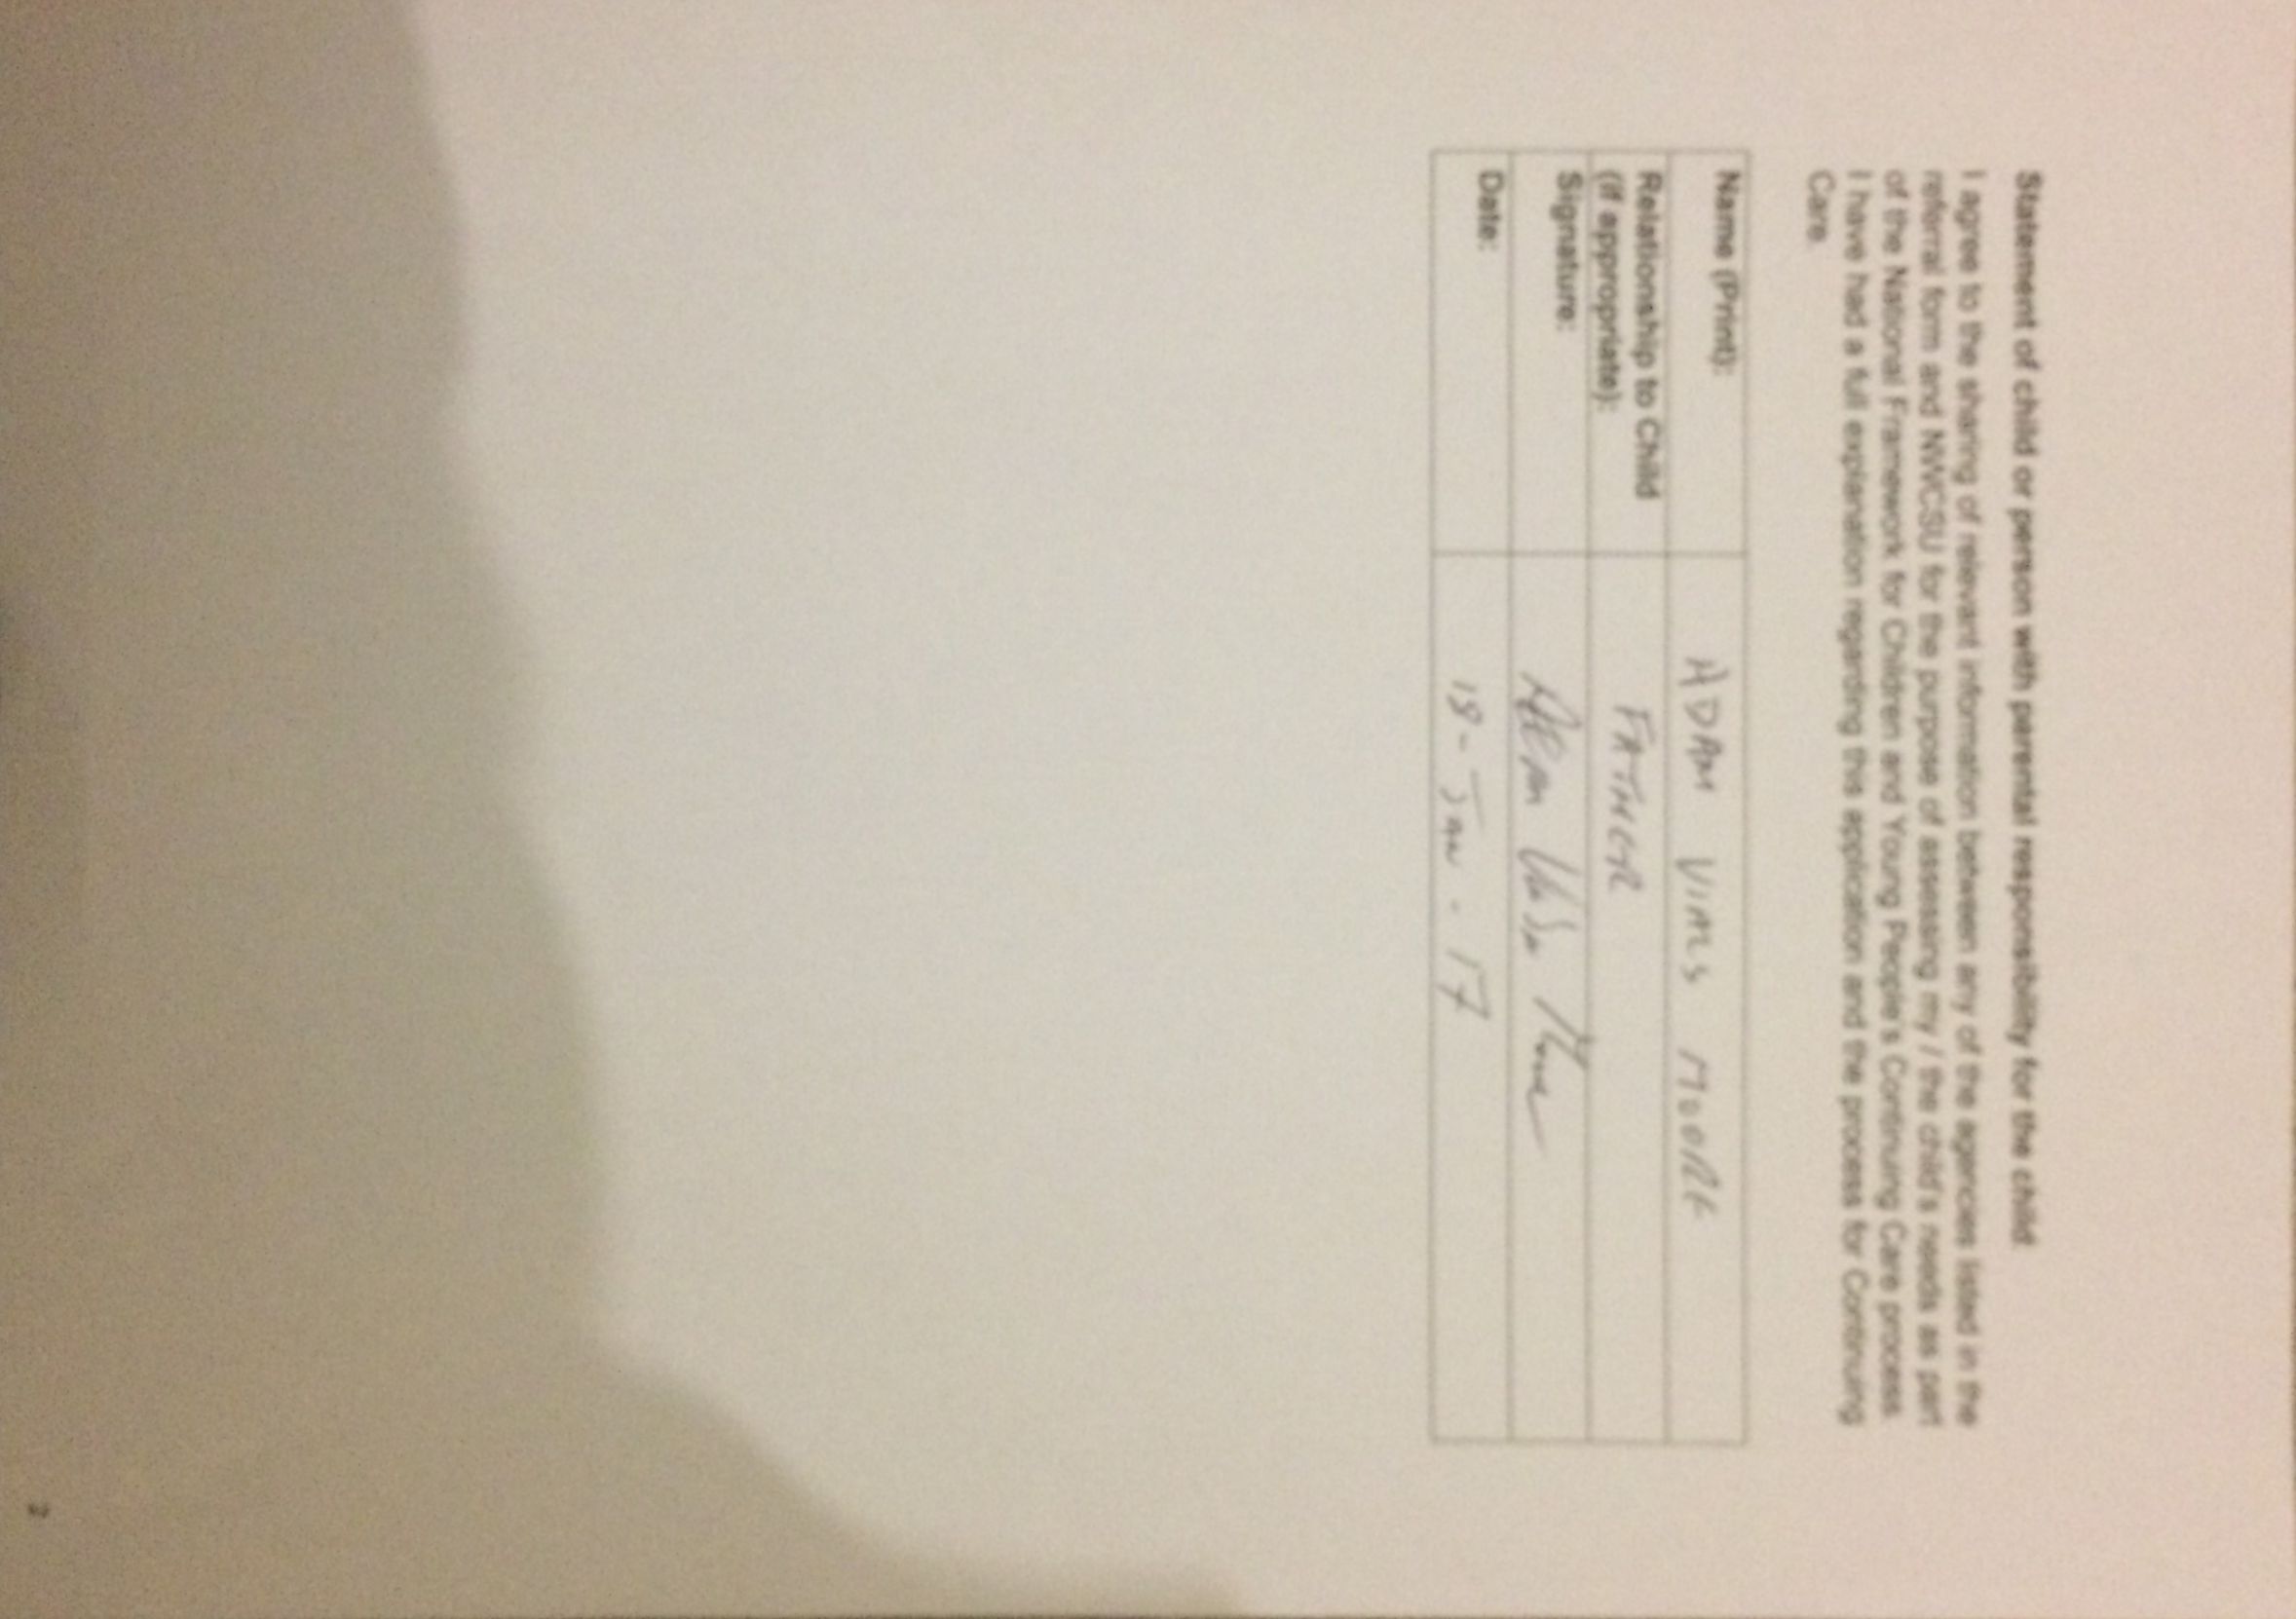 Statement of child or person with parental responsibility for the child.
I agree to the sharing of relevant information between any of the agencies listed in the
referral form and NWCSU for the purpose of assessing my / the child's needs as part
of the National Framework for Children and Young People's Continuing Care process.
I have had a full explanation regarding this application and the process for Continuing
Care.
Name (Print): ADAM MOORE
Relationship to Child
(if appropriate): FATHER
Signature:
Date: 18-Jan-17
2